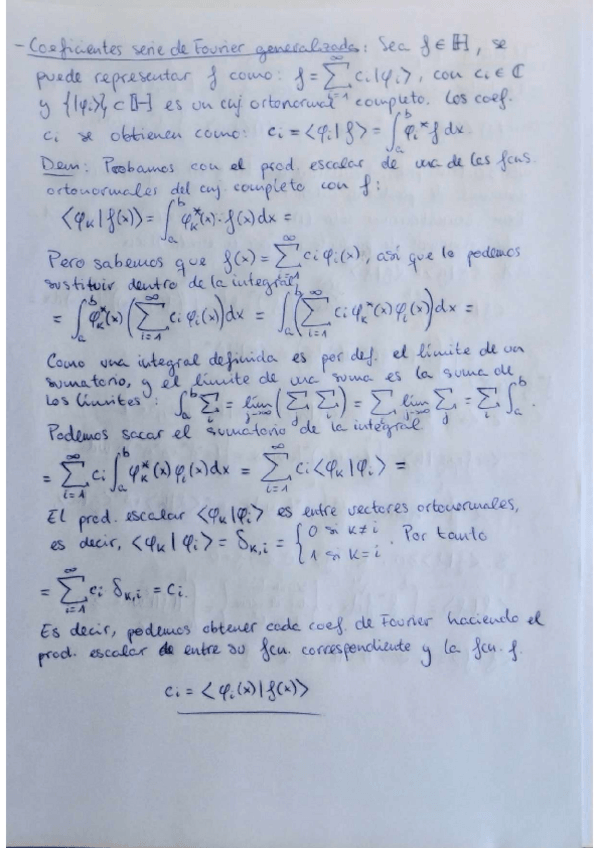 - Coeficientes serie de Fourier generalizada: Sea f ∈ ℍ, se
puede representar f como: f = ∑_{i=1}^{∞} c_i |φ_i>, con c_i ∈ ℂ
y {|φ_i>} ⊂ ℍ es un cnj ortonormal completo. Los coef.
c_i se obtienen como: c_i = <φ_i|f> = ∫_a^b φ_i* f dx
Dem: Probamos con el prod. escalar de una de las fcns.
ortonormales del cnj completo con f:
<φ_k|f(x)> = ∫_a^b φ_k*(x)·f(x)dx =
Pero sabemos que f(x) = ∑_{i=1}^{∞} c_i φ_i(x), así que lo podemos
sustituir dentro de la integral
= ∫_a^b φ_k*(x) (∑_{i=1}^{∞} c_i φ_i(x)) dx = ∫_a^b (∑_{i=1}^{∞} c_i φ_k*(x) φ_i(x)) dx =
Como una integral definida es por def. el límite de un
sumatorio, y el límite de una suma es la suma de
los límites: ∫_a^b ∑_i = lim_{j→∞} (∑_j ∑_i) = ∑_i lim_{j→∞} ∑_j = ∑_i ∫_a^b.
Podemos sacar el sumatorio de la integral
= ∑_{i=1}^{∞} c_i ∫_a^b φ_k*(x) φ_i(x) dx = ∑_{i=1}^{∞} c_i <φ_k|φ_i> =
El prod. escalar <φ_k|φ_i> es entre vectores ortonormales,
es decir, <φ_k|φ_i> = δ_{k,i} = { 0 si k≠i 1 si k=i . Por tanto
= ∑_{i=1}^{∞} c_i δ_{k,i} = c_i.
Es decir, podemos obtener cada coef. de Fourier haciendo el
prod. escalar de entre su fcn. correspondiente y la fcn. f.
c_i = <φ_i(x)|f(x)>